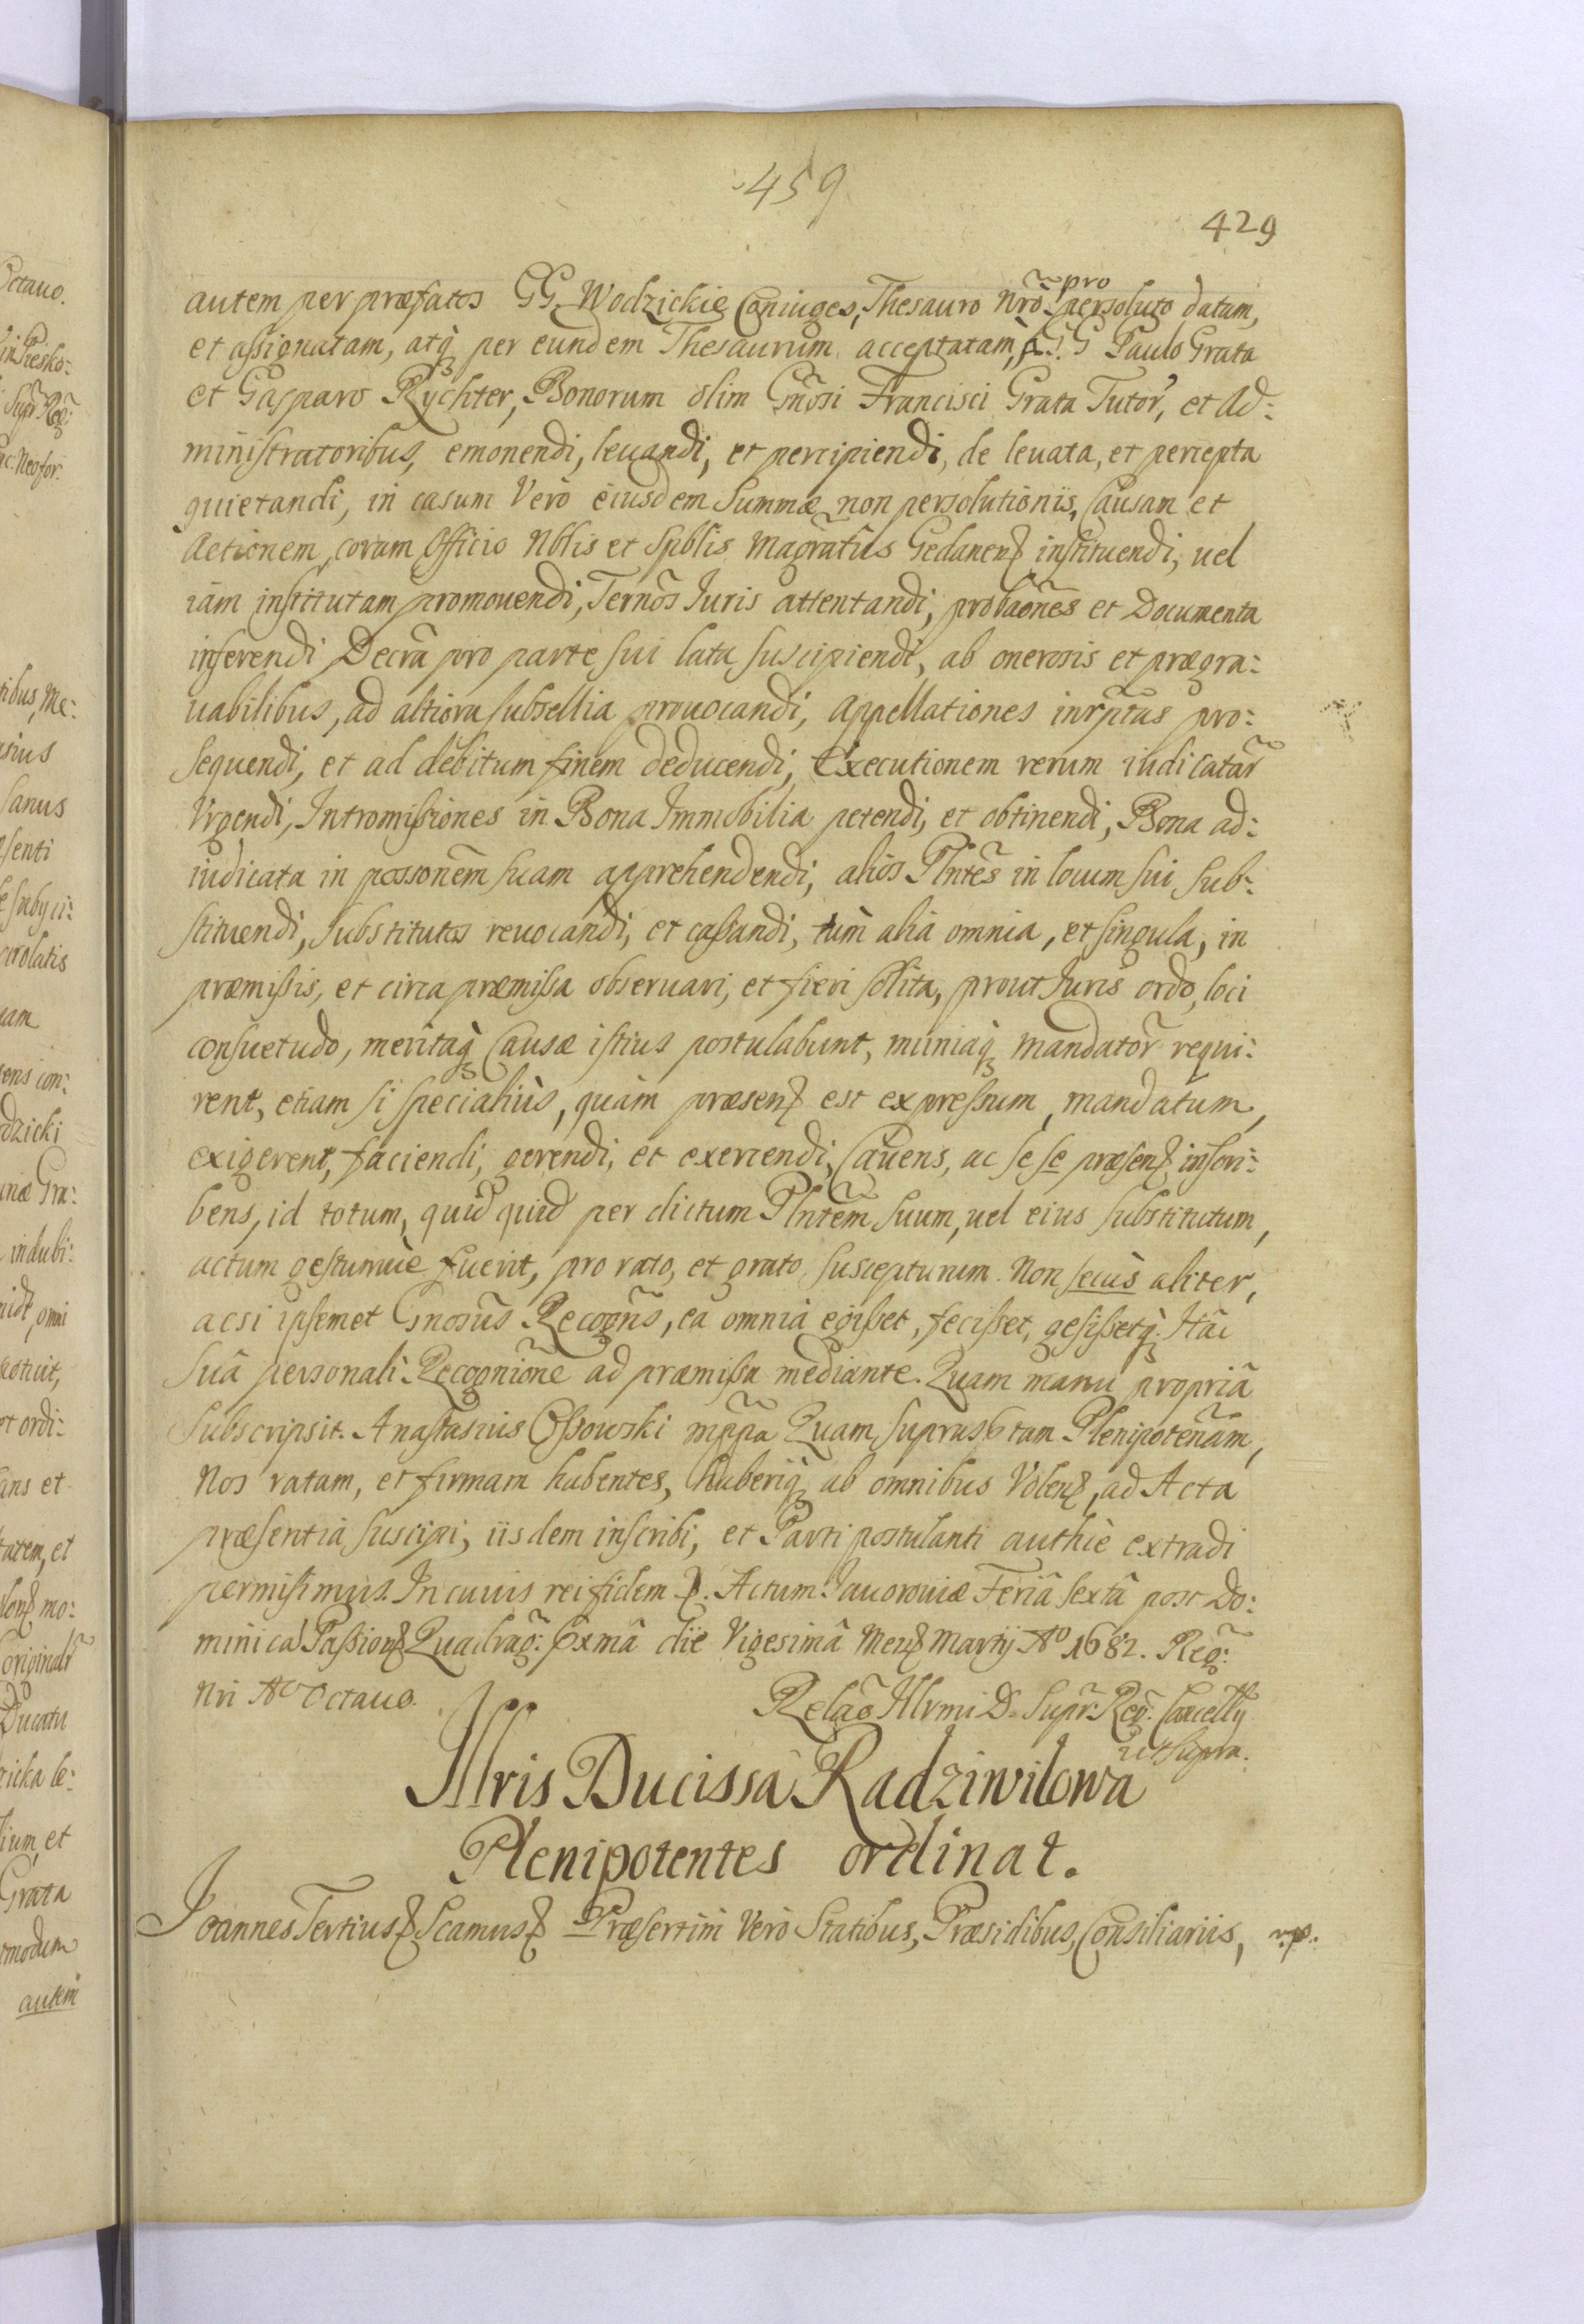 459
429
autem per præfatos GG. Wodzickie Coniuges, Thesauro nr̃o pro persoluto datam,
et aßignatam, atq; per eundem Thesaurum acceptatam, à G.G Paulo Grata
et Gasparo Rychter, Bonorum olim Gñosi Francisci Grata Tutor, et Ad:
ministratoribus, emonendi, leuandi, et percipiendi, de leuata, et percepta
quietandi, in casum Verò eiusdem Summæ non persolutionis, Causam et
Actionem, coram Officio Nblis et Spblis Magratus Gedanens instituendi, uel
iam institutam promouendi, Ternõs Iuris attentandi, probaõnes et Documenta
inferendi Decrã pro parte sui lata suscipiendi, ab onerosis et prægra:
uabilibus, ad altiora subsellia prouocandi, Appellationes inrptas pro:
sequendi, et ad debitum finem deducendi, Executionem rerum iudicatar̃
Vrgendi, Intromißiones in Bona Immobilia petendi, et obtinendi, Bona ad:
iudicata in possonẽm suam apprehendendi, alios Plntẽs in locum sui sub:
stituendi, substitutos reuocandi, et caßandi, tùm alia omnia, et singula, in
præmißis, et circa præmißa obseruari, et fieri solita, prout Iuris ordo, loci
consuetudo, meritaq; Causæ istius postulabunt, muniaq; mandator̃ requi:
rent, etiam si specialiùs, quàm præsens est expreßum, mandatum,
exigerent, faciendi, gerendi, et exercendi, Cauens, ac se se præsens inscri:
bens, id totum, quid quid per dictum Plntẽm suum, uel eius substitutum,
actum gestumuè fuerit, pro rato, et grato suscepturum. Non secùs aliter,
acsi ipsemet Gnosus Recogñs, ea omnia egißet, fecißet, geßißetq;. Hâc
suâ personali Recogniõne ad præmißa mediante. Quam manu propriâ
subscripsit. Anastasius Oßowski mppa Quam suprascrptam Plenipoteñam,
Nos ratam, et firmam habentes, haberiq; ab omnibus Volens, ad Acta
præsentia suscipi, iisdem inscribi, et Parti postulanti authcè extradi
permisimus. In cuius rei fidem. Actum Iauorouiæ Feriâ sextâ post Do:
minicâ Paßions Quadrag: pxmâ die Vigesimâ Mens Martij Aº 1682. Reg:
Nri Aº Octauo.
Relaõ Illrmi D. Supr Reg. Cancellrij
ut supra.
Illris Ducissa Radziwilowa
Plenipotentes ordinat.
Ioannes Tertius Scamus Præsertim Verò Statibus, Præsidibus, Consiliariis,